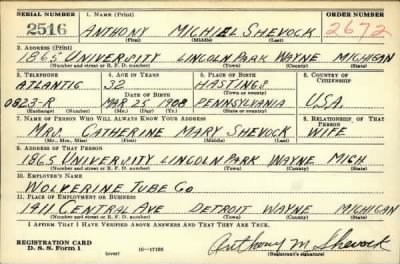 SERIAL NUMBER 1. NAME (Print) ORDER NUMBER
2516 ANTHONY MICHIEL SHEVOCK 2672
(First) (Middle) (Last)
2. ADDRESS (Print)
1865 UNIVERSITY LINCOLN PARK WAYNE MICHIGAN
(Number and street or R. F. D. number) (Town) (County) (State)
3. TELEPHONE 4. AGE IN YEARS 5. PLACE OF BIRTH 6. COUNTRY OF CITIZENSHIP
ATLANTIC 32 HASTINGS
DATE OF BIRTH (Town or county)
0823-R MAR 25 1908 PENNSYLVANIA U.S.A.
(Exchange) (Number) (Mo.) (Day) (Yr.) (State or country)
7. NAME OF PERSON WHO WILL ALWAYS KNOW YOUR ADDRESS 8. RELATIONSHIP OF THAT PERSON
MRS. CATHERINE MARY SHEVOCK WIFE
(Mr., Mrs., Miss) (First) (Middle) (Last)
9. ADDRESS OF THAT PERSON
1865 UNIVERSITY LINCOLN PARK WAYNE MICH
(Number and street or R. F. D. number) (Town) (County) (State)
10. EMPLOYER'S NAME
WOLVERINE TUBE CO
11. PLACE OF EMPLOYMENT OR BUSINESS
1411 CENTRAL AVE DETROIT WAYNE MICHIGAN
(Number and street or R. F. D. number) (Town) (County) (State)
I AFFIRM THAT I HAVE VERIFIED ABOVE ANSWERS AND THAT THEY ARE TRUE.
REGISTRATION CARD
D. S. S. Form 1 (over) 16-17105 Anthony M Shevock
(Registrant's signature)